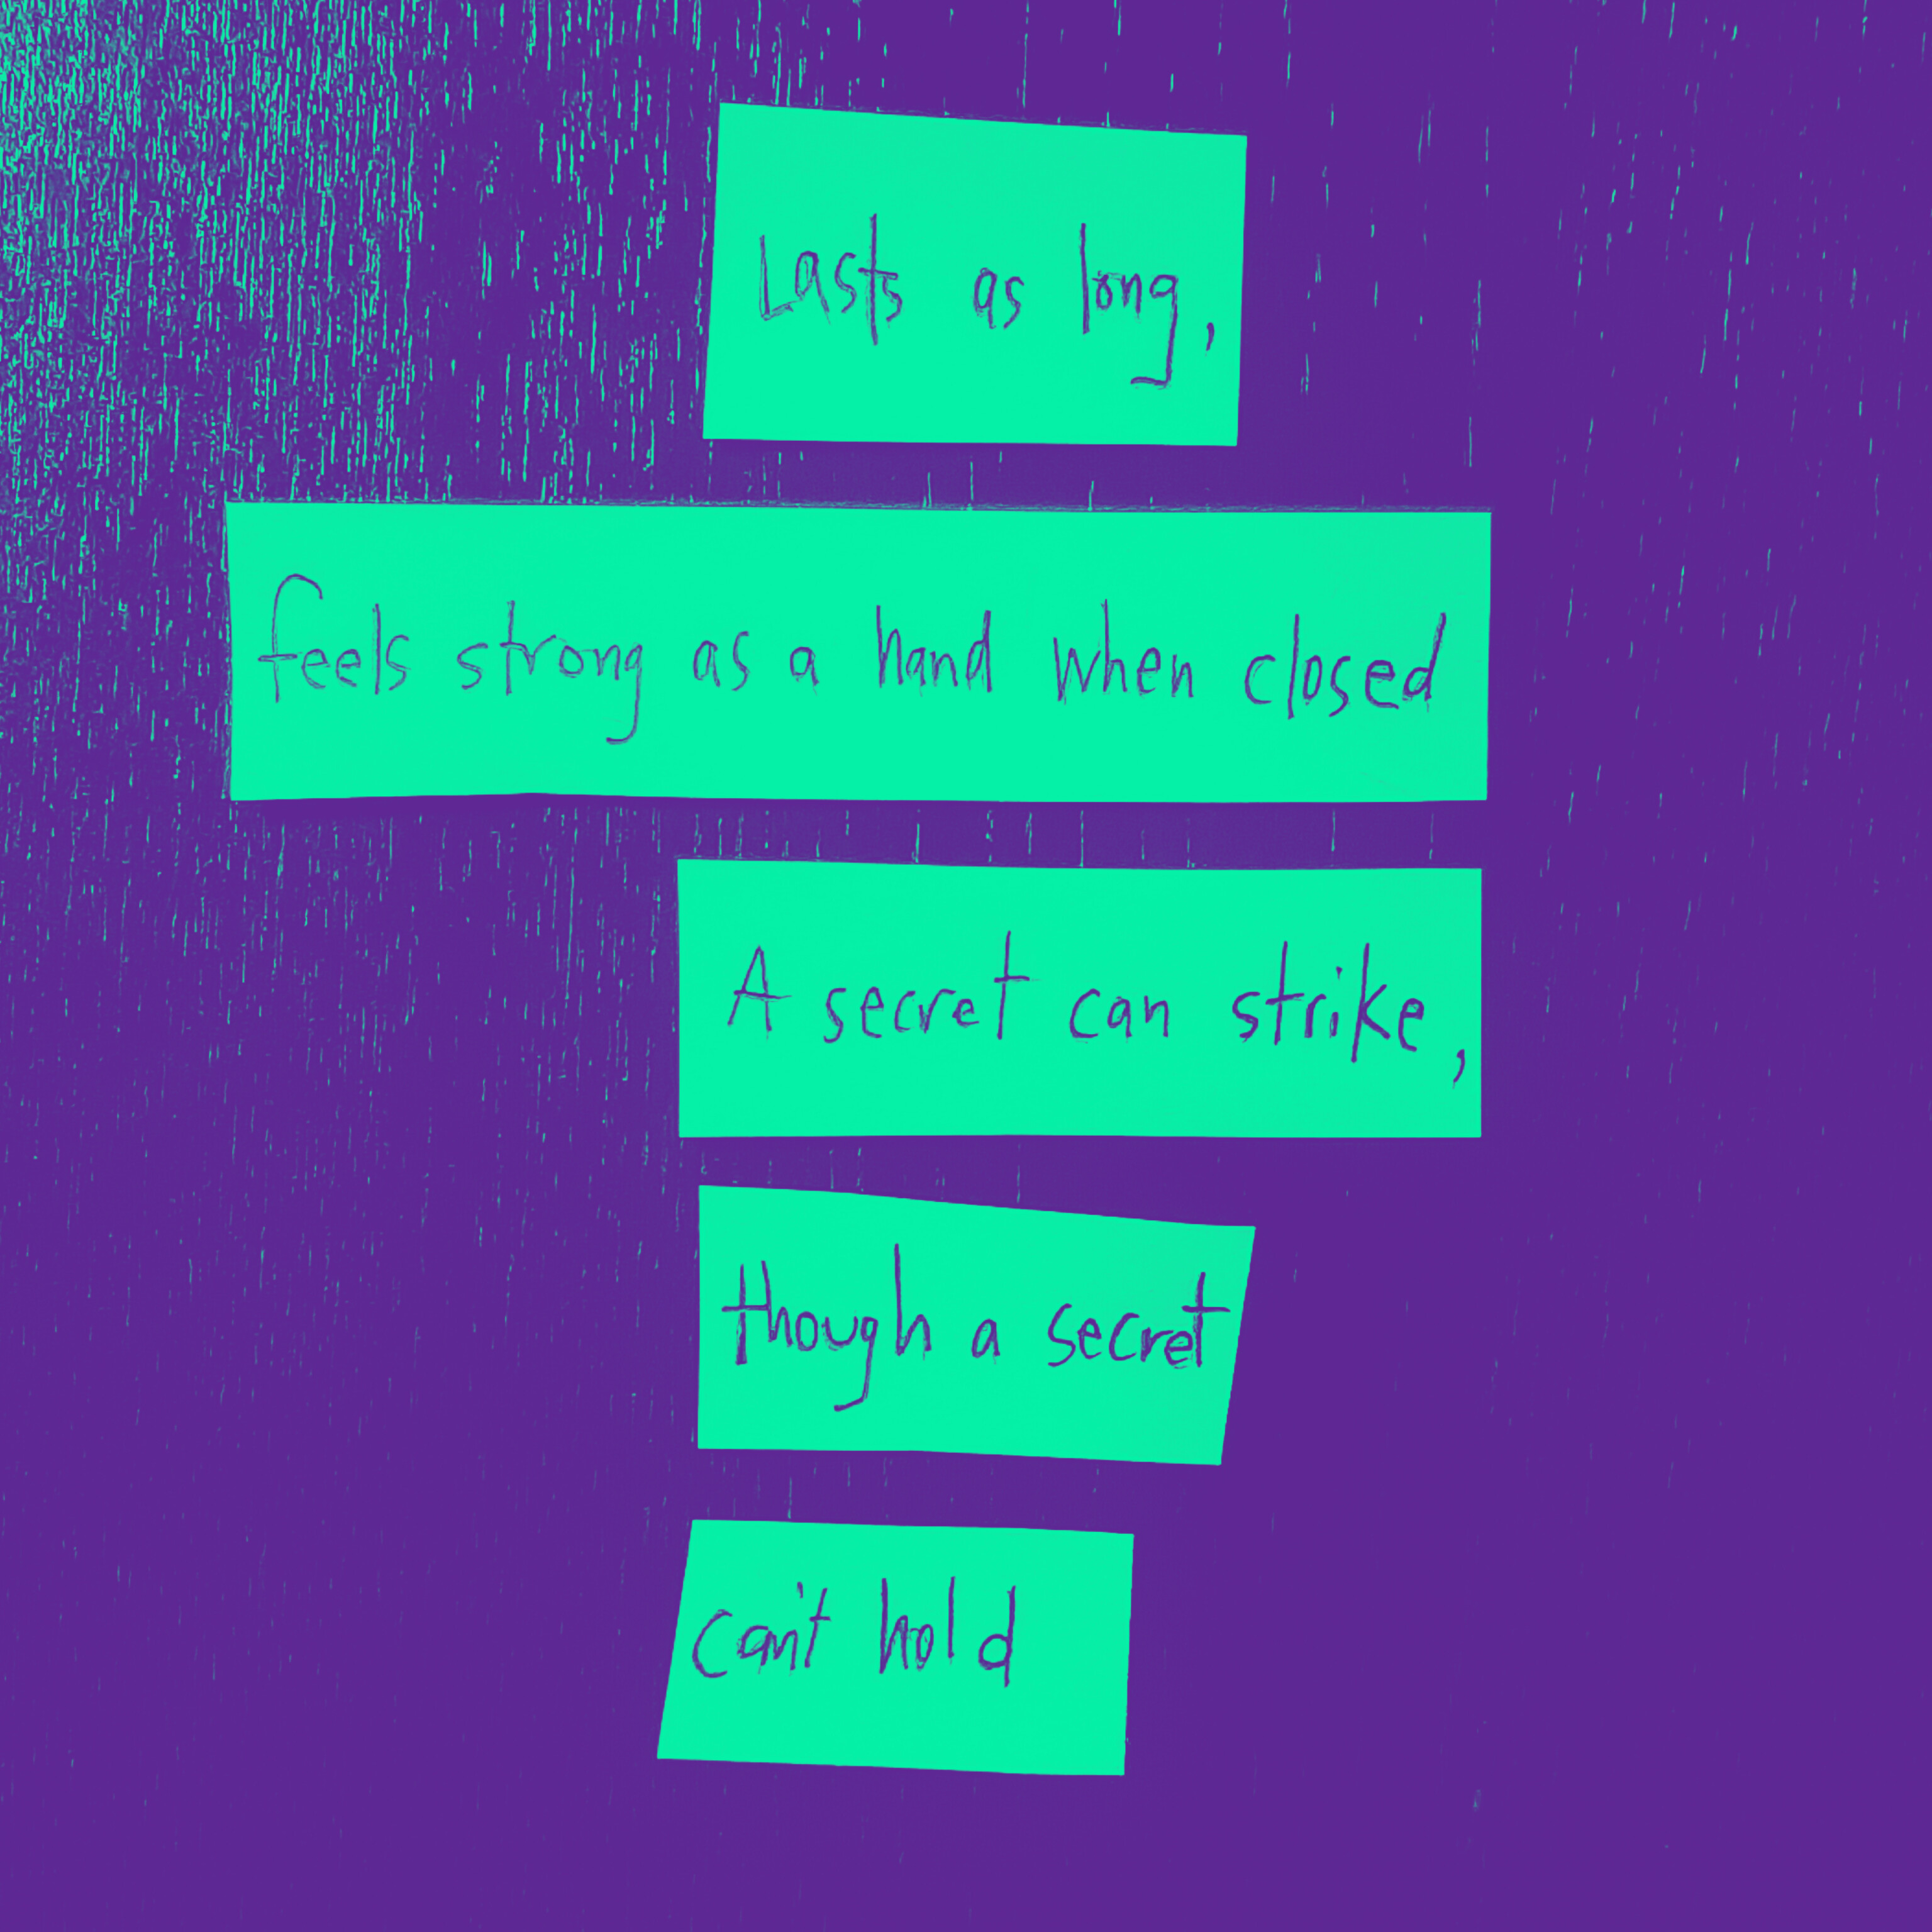 Lasts as long,
feels strong as a hand when closed
A secret can strike,
though a secret
can't hold